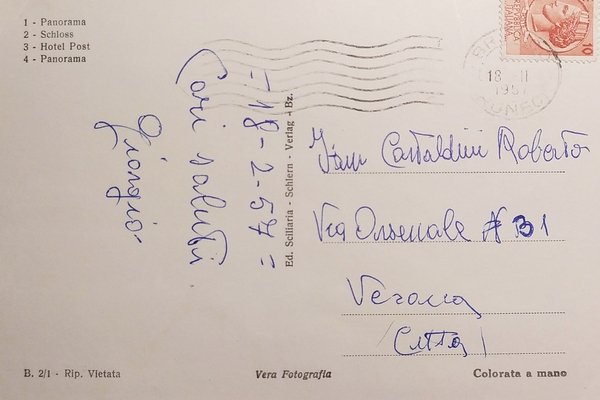 1 - Panorama
2 - Schloss
3 - Hotel Post
4 - Panorama
= 18-2-57 =
Cari saluti
Giorgio
Ed. Sciliaria - Schlern - Verlag - Bz.
10
18 - II
1957
Castaldini Roberto
Via Arsenale N 31
Verona
(Città)
B. 2/1 - Rip. Vietata
Vera Fotografia
Colorata a mano